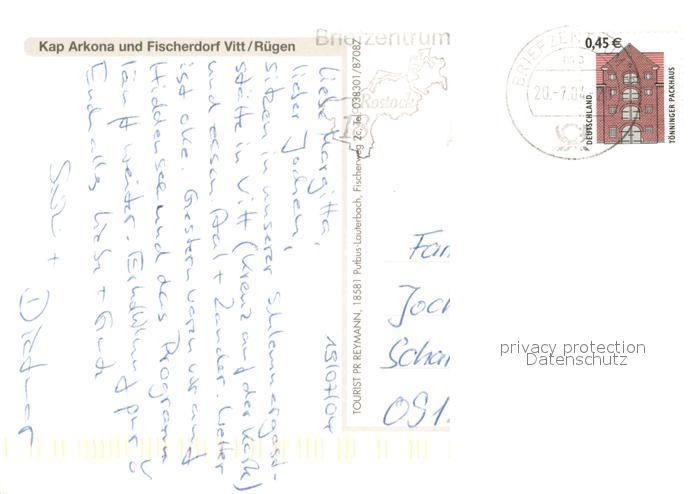 Kap Arkona und Fischerdorf Vitt/Rügen
Briefzentrum
Rostock
18
BRIEFZEN
20.-7.04
0,45 €
DEUTSCHLAND
TÖNNINGER PACKHAUS
TOURIST PR REYMANN, 18581 Putbus-Lauterbach, Fischerweg 2c, Tel. 038301/87087
15/07/04
Liebe Margitta,
lieber Jochen,
sitzen in unserer Schlemmergast-
stätte in Vitt (Kreuz auf der Karte)
und essen Aal + Zander. Wetter
ist oke. Gestern waren wir auf
Hiddensee und das Programm
läuft weiter. Erholung pur
Euch alles Liebe + Gute
+ Dietmar
Fam
Joc
Scha
091
privacy protection
Datenschutz